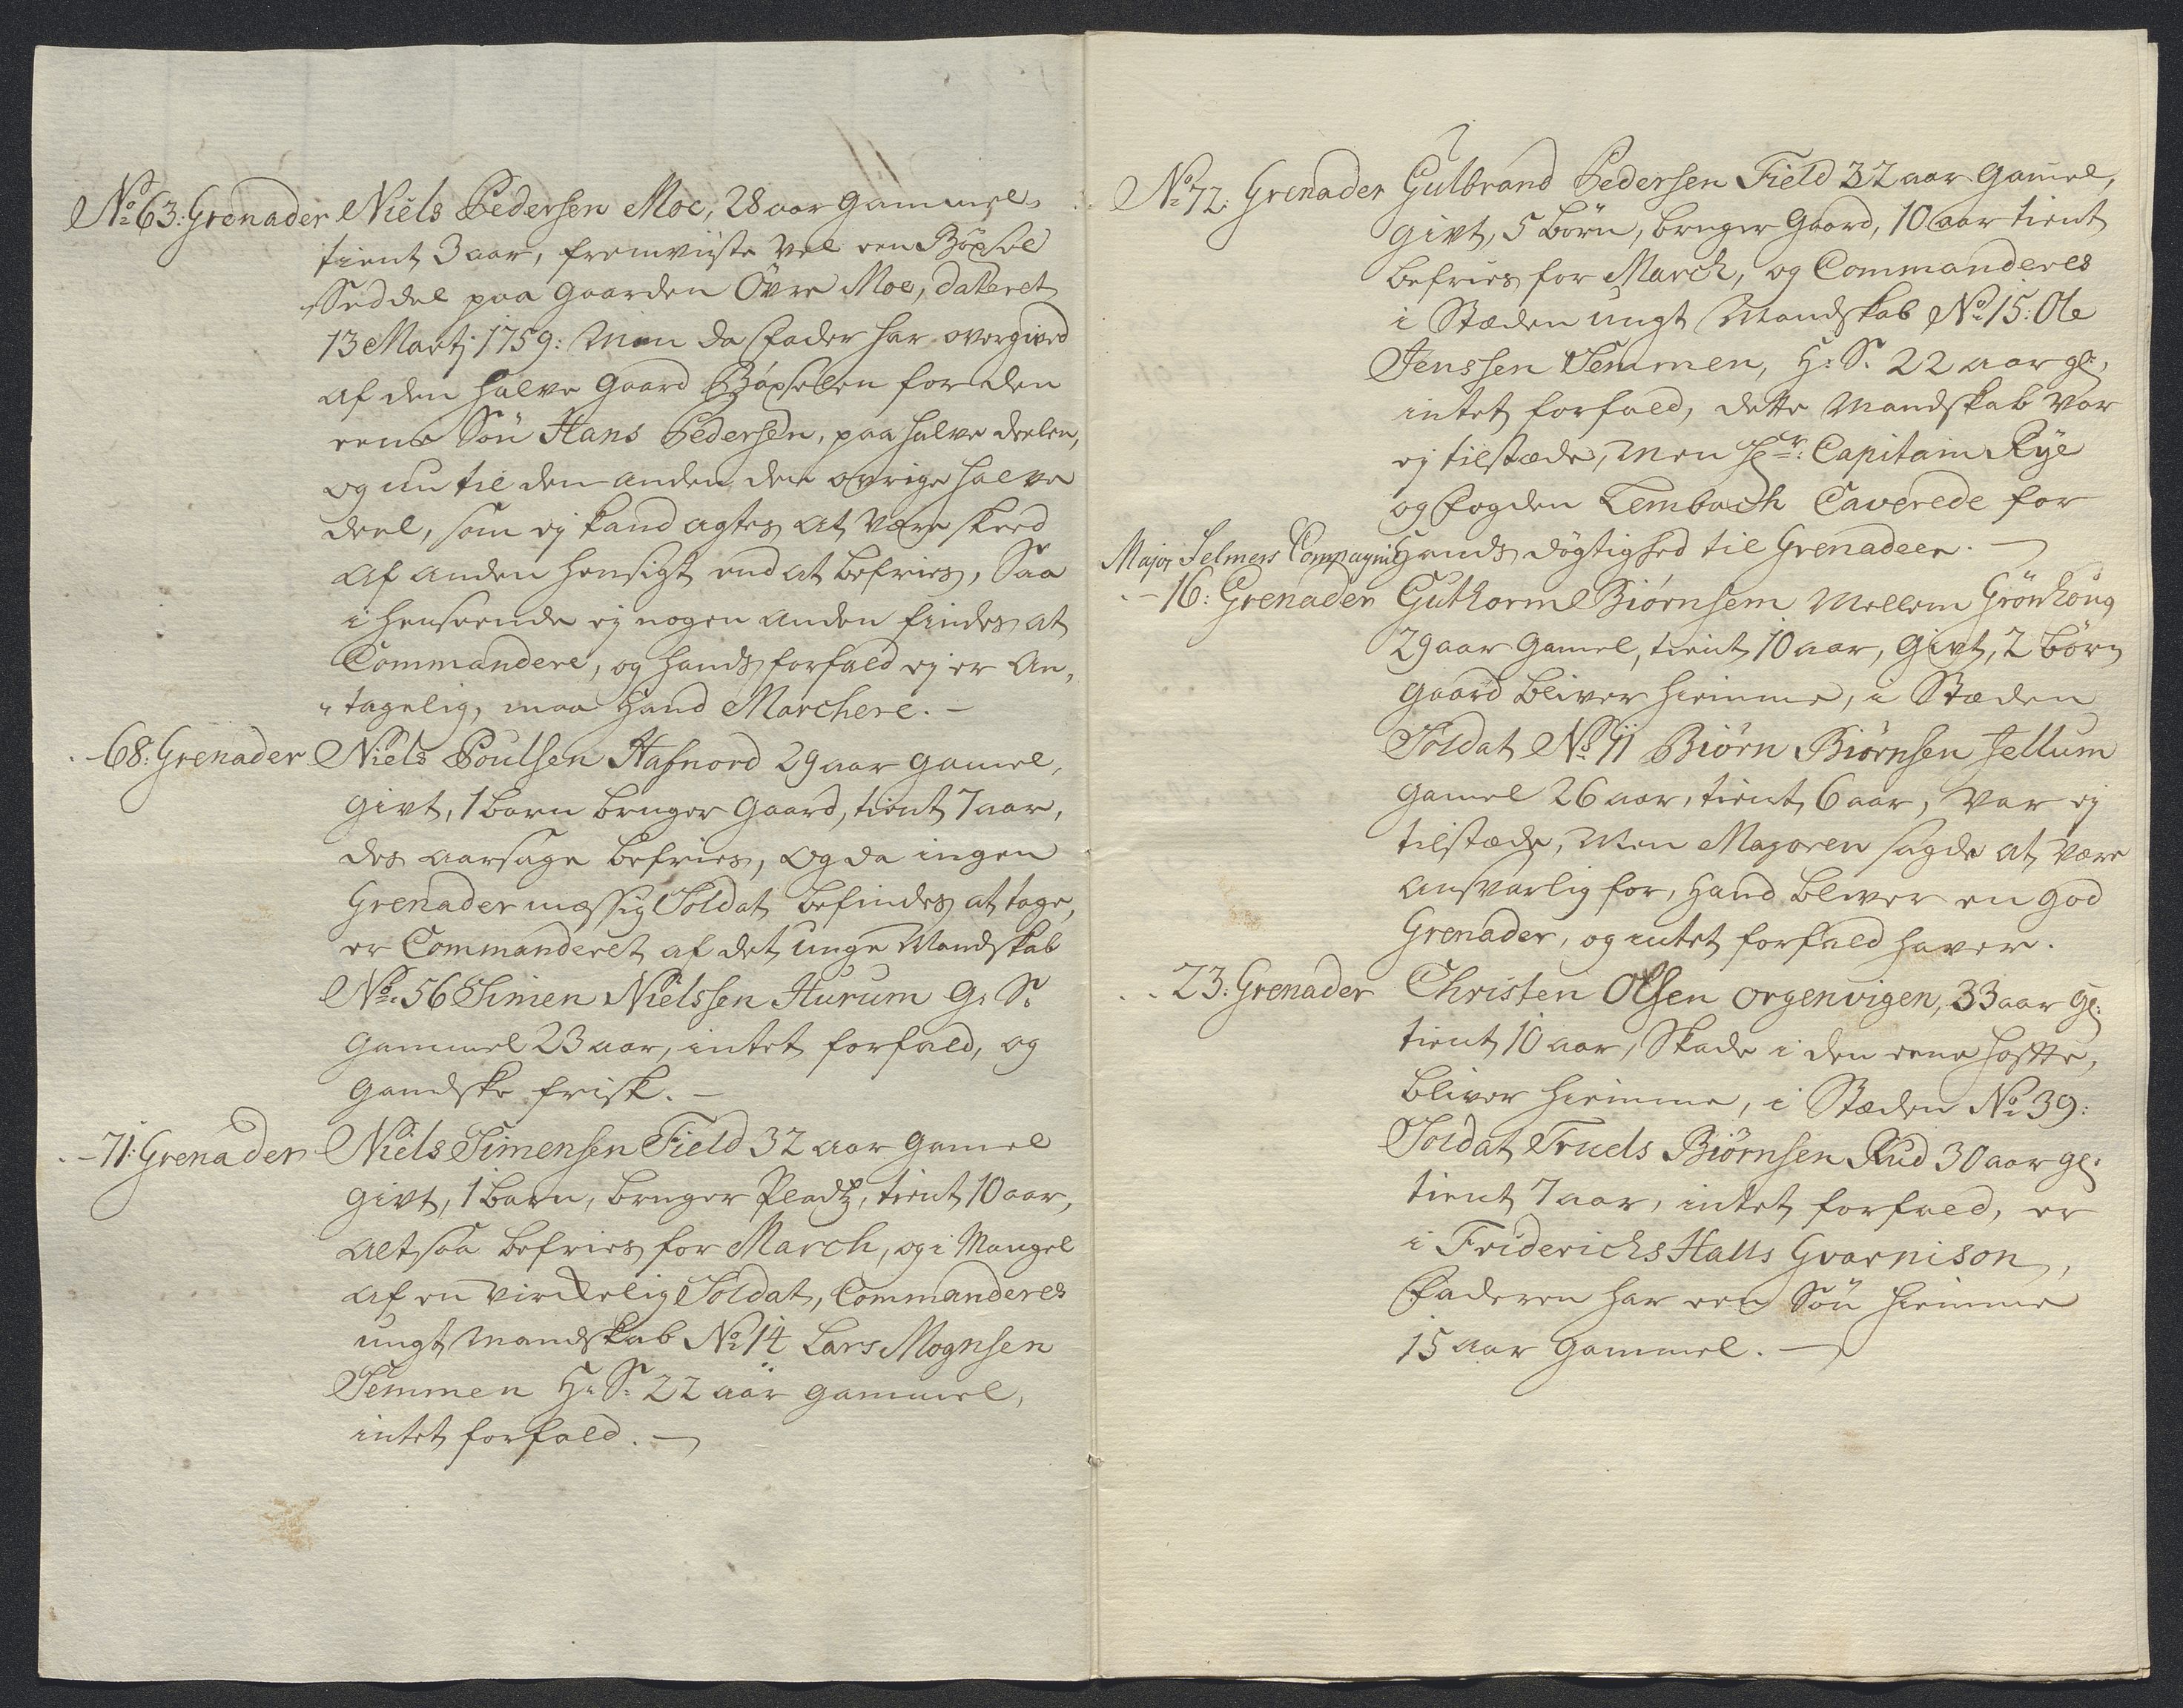 No 63: Grenader Niels Pedersen Moe, 28 aar gammel,
tient 3 aar, fremviiste vel een Böxsel
Seddel paa gaarden Övre Moe, dateret
13 Martj 1759: Men da Fader har overgived
af den halve gaard Böxselen for den
eene Sön Hans Pedersen, paa halve deelen,
og nu til den anden den övrige halve
deel, som ej kand agtes at være skeed
af anden hensigt end at befries, Saa
i henseende ej nogen anden findes at
Commandere, og hands forfald ej er An,
„tagelig, maa hand Marchere. –
- 68: Grenader Niels Poulsen Hafnord 29 aar gamel,
givt, 1 barn bruger gaard, tient 7 aar,
des aarsage befries, og da ingen
Grenader mæssig Soldat befindes at tage,
er Commanderet af det unge Mandskab
No. 56 Simen Nielssen Hurum G: S:
gammel 23 aar, intet forfald, og
gandske frisk. –
- 71: Grenader Niels Simensen Field 32 aar gamel
givt, 1 barn, bruger Pladtz, tient 10 aar,
altsaa befries for March, og i Mangel
af en virkelig Soldat, Commanderes
ungt Mandskab No 14 Lars Mognsen
Temmen H: S: 22 aar gammel,
intet forfald. –
No 72: Grenader Gulbrand Pedersen Field 32 aar gamel,
givt, 5 börn, bruger gaard, 10 aar tient
befries for March, og Commanderes
i Stæden ungt Mandskab No 15: Ole
Jenssen Temmen, H: S. 22 aar gl:
intet forfald, dette Mandskab var
ej tilstæde, Men Hr: Capitain Rye
og Fogden Lembach Caverede for
Major Selmers Compagnie Hands dögtighed til Grenadeer. –
- 16: Grenader Guthorm Biörnsem Mellem Grönhoug
29 aar gamel, tient 10 aar, givt, 2 börn
gaard bliver hiemme, i Stæden
Soldat No 11 Biörn Biörnsen Jellum
gamel 26 aar, tient 6 aar, var ej
tilstæde, Men Majoren sagde at være
ansvarlig for, hand bliver en god
Grenader, og intet forfald haver.
- 23: Grenader Christen Olsen Orgenvigen, 33 aar gl:
tient 10 aar, Skade i den eene hofte,
bliver hiemme, i Stæden No 39:
Soldat Truels Biörnsen Rud 30 aar gl:
tient 7 aar, intet forfald, er
i Friderichs Halls Gvarnison,
Faderen har een Sön hiemme
15 aar gammel. –